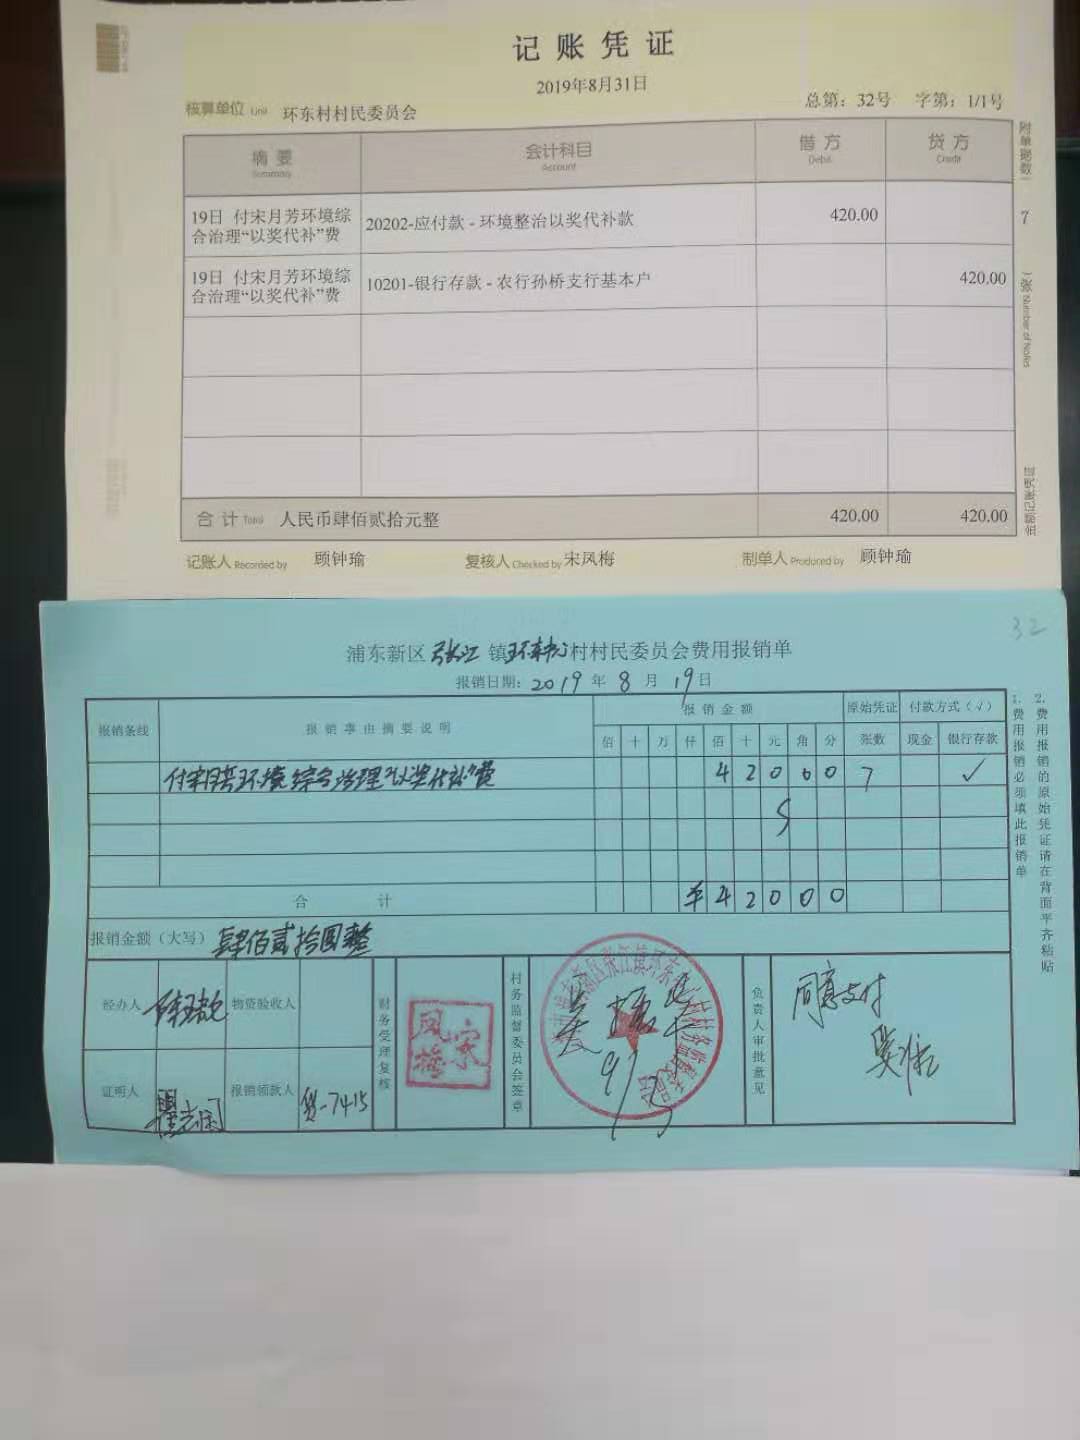 记账凭证
2019年8月31日
核算单位 Unit 环东村村民委员会
总第：32号 字第：1/1号
摘要 Summary 会计科目 Account 借方 Debit 贷方 Credit
19日 付宋月芳环境综合治理“以奖代补”费 20202-应付款 - 环境整治以奖代补款 420.00
19日 付宋月芳环境综合治理“以奖代补”费 10201-银行存款 - 农行孙桥支行基本户 420.00
合计 Total 人民币肆佰贰拾元整 420.00 420.00
记账人 Recorded by 顾钟瑜 复核人 Checked by 宋凤梅 制单人 Produced by 顾钟瑜
附单据数 7 张
金额记账凭证
32
浦东新区张江镇环东村村民委员会费用报销单
报销日期：2019年8月19日
报销条线 报销事由摘要说明 报销金额 原始凭证 付款方式（√）
佰 十 万 仟 佰 十 元 角 分 张数 现金 银行存款
付宋月芳环境综合治理“以奖代补”费 4 2 0 0 0 7 √
合计 ¥ 4 2 0 0 0
报销金额（大写）肆佰贰拾圆整
经办人 物资验收人
财务受理复核
宋凤梅
村务监督委员会签章
9/
负责人审批意见
同意支付
证明人 报销领款人 贷-7415
1.费用报销必须填此报销单
2.费用报销的原始凭证请在背面平齐粘贴